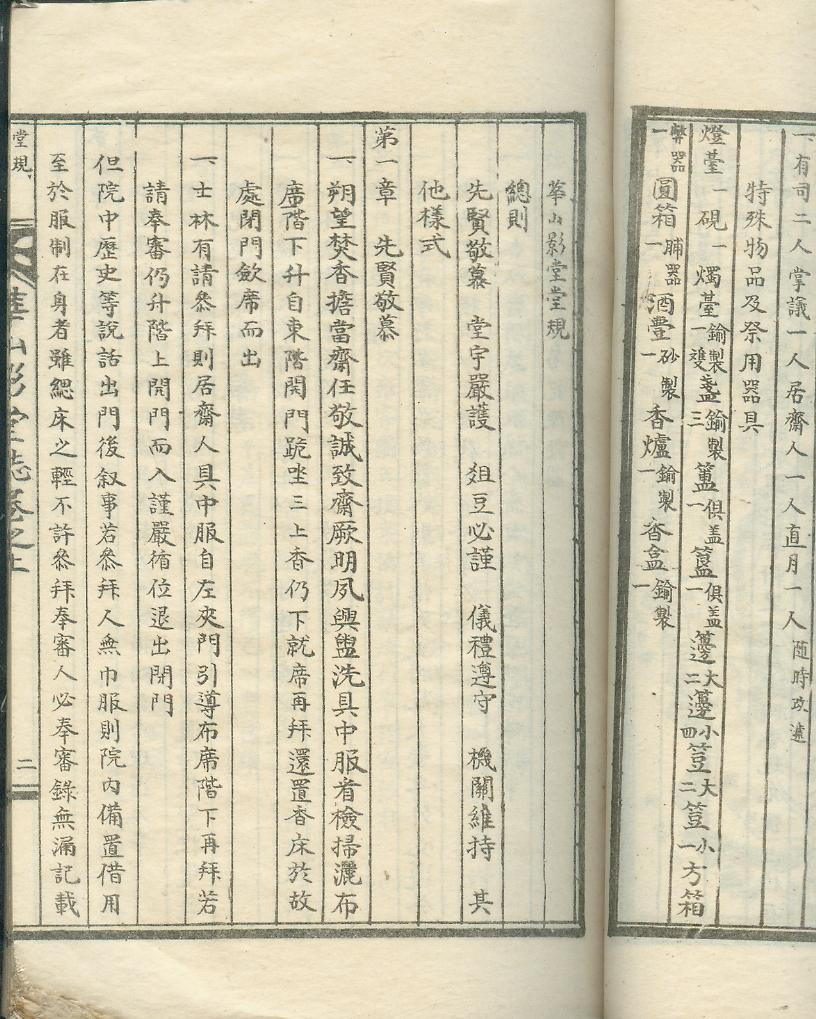 一、有司二人掌議一人居齋人一人直月一人隨時改遞
特殊物品及祭用器具
燈臺一硯一燭臺鍮製一雙盞鍮製三簠俱盖一簋俱盖一籩大二籩小四荳大二荳小一方箱
一幣器圓箱一脯器酒壺一砂製香爐鍮製一香盒鍮製一
華山影堂堂規
總則
先賢敬慕 堂宇嚴護 俎豆必謹 儀禮遵守 機關維持 其
他樣式
第一章 先賢敬慕
一、朔望焚香擔當齋任敬誠致齋厥明夙興盥洗具巾服看檢掃灑布
席階下升自東階開門跪坐三上香仍下就席再拜還置香床於故
處閉門斂席而出
一、士林有請叅拜則居齋人具巾服自左夾門引導布席階下再拜若
請奉審仍升階上開門而入謹嚴循位退出閉門
但院中歷史等說話出門後叙事若叅拜人無巾服則院內備置借用
至於服制在身者雖緦麻之輕不許叅拜奉審人必奉審錄無漏記載
堂規、
華山影堂誌卷之上
二